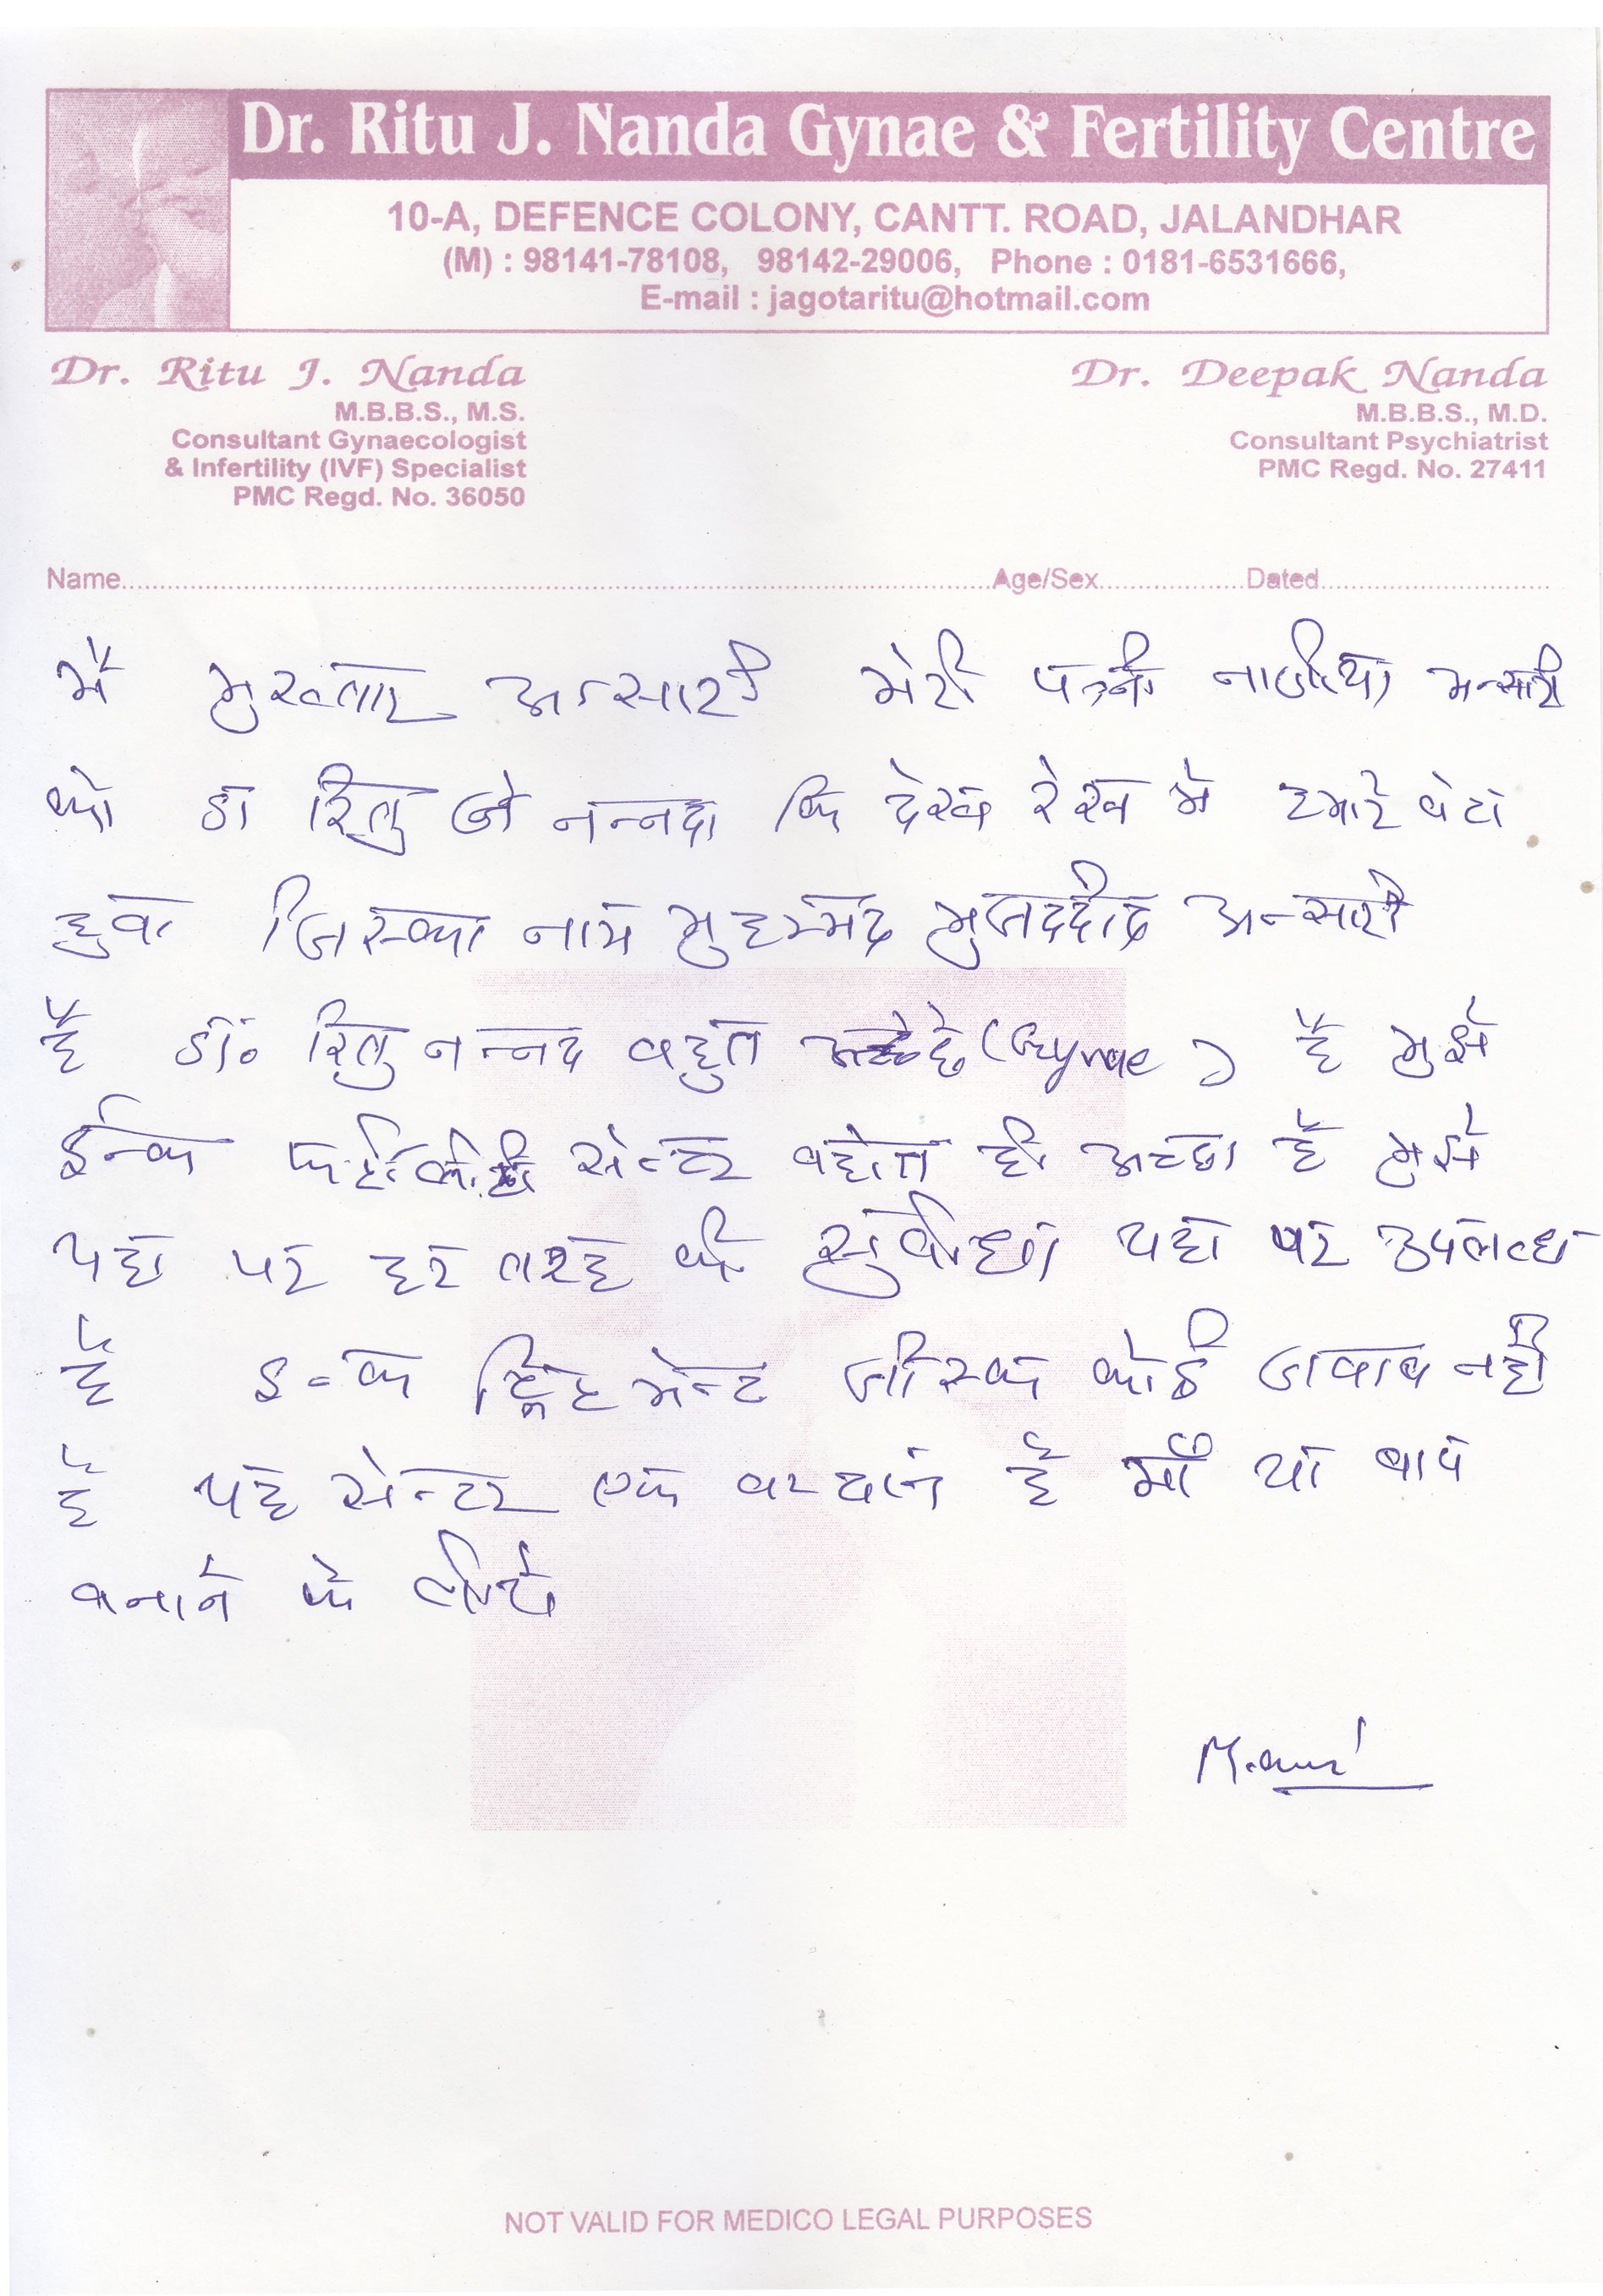 Dr. Ritu J. Nanda Gynae & Fertility Centre
10-A, DEFENCE COLONY, CANTT. ROAD, JALANDHAR
(M) : 98141-78108, 98142-29006, Phone : 0181-6531666,
E-mail : jagotaritu@hotmail.com
Dr. Ritu J. Nanda
M.B.B.S., M.S.
Consultant Gynaecologist
& Infertility (IVF) Specialist
PMC Regd. No. 36050
Dr. Deepak Nanda
M.B.B.S., M.D.
Consultant Psychiatrist
PMC Regd. No. 27411
Name Age/Sex Dated
मैं मुख्तार अन्सारी मेरी पत्नी नाजीया अन्सारी
को डा रितु जे नन्नदा कि देख रेख मे हमारे बेटा
हुवा जिस्का नाम मुहम्मद मुजददीद अन्सारी
है डॉ॰ रितु नन्नद बहुत (Gynae) है मुझे
ईन्क सेन्टर बहोत ही अच्छा है मुझे
यहा पर हर तरह की सुवीधा यहा पर उपलब्ध
है इन्क ट्रिटमेन्ट जीस्क कोई जवाब नही
है यह सेन्टर एक वरदान है माँ या बाप
बनाने के लीये
NOT VALID FOR MEDICO LEGAL PURPOSES